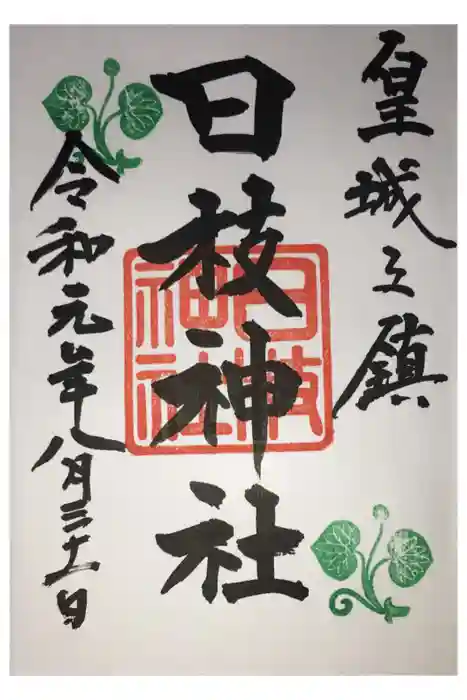 皇城之鎮
日枝神社
日枝
神社
令和元年八月三十一日